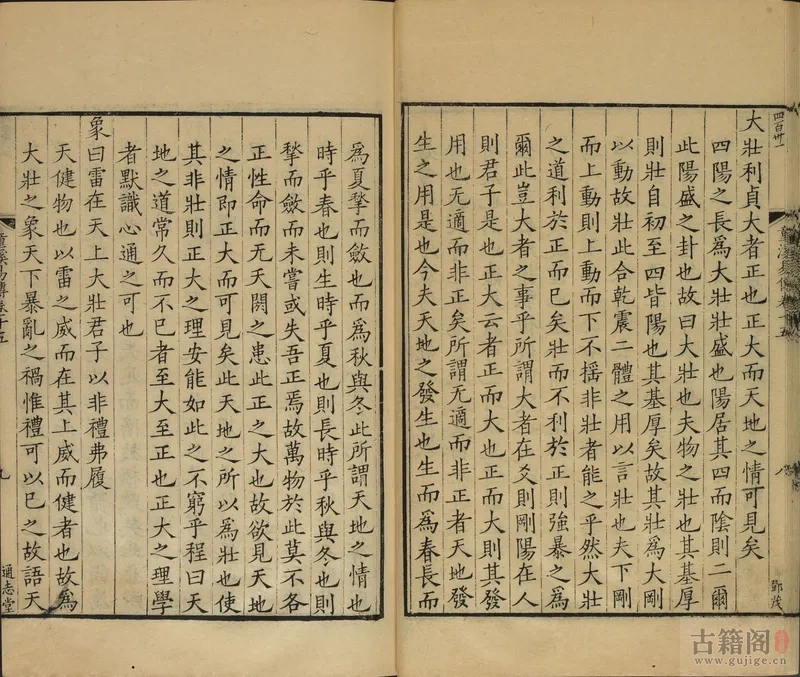 四百卅一
大壯利貞大者正也正大而天地之情可見矣
四陽之長爲大壯壯盛也陽居其四而陰則二爾
此陽盛之卦也故曰大壯也夫物之壯也其基厚
則壯自初至四皆陽也其基厚矣故其壯爲大剛
以動故壯此合乾震二體之用以言壯也夫下剛
而上動則上動而下不揺非壯者能之乎然大壯
之道利於正而已矣壯而不利於正則強暴之爲
爾此豈大者之事乎所謂大者在爻則剛陽在人
則君子是也正大云者正而大也正而大則其發
用也无適而非正矣所謂无適而非正者天地發
生之用是也今夫天地之發生也生而爲春長而
八
鄧茂
爲夏揫而斂也而爲秋與冬此所謂天地之情也
時乎春也則生時乎夏也則長時乎秋與冬也則
揫而斂而未嘗或失吾正焉故萬物於此莫不各
正性命而无夭閼之患此正之大也故欲見天地
之情即正大而可見矣此天地之所以爲壯也使
其非壯則正大之理安能如此之不窮乎程曰天
地之道常久而不已者至大至正也正大之理學
者默識心通之可也
象曰雷在天上大壯君子以非禮弗履
天健物也以雷之威而在其上威而健者也故爲
大壯之象天下暴亂之禍惟禮可以已之故語天
童溪易傳卷十五
九
通志堂
古籍阁
www.gujige.cn